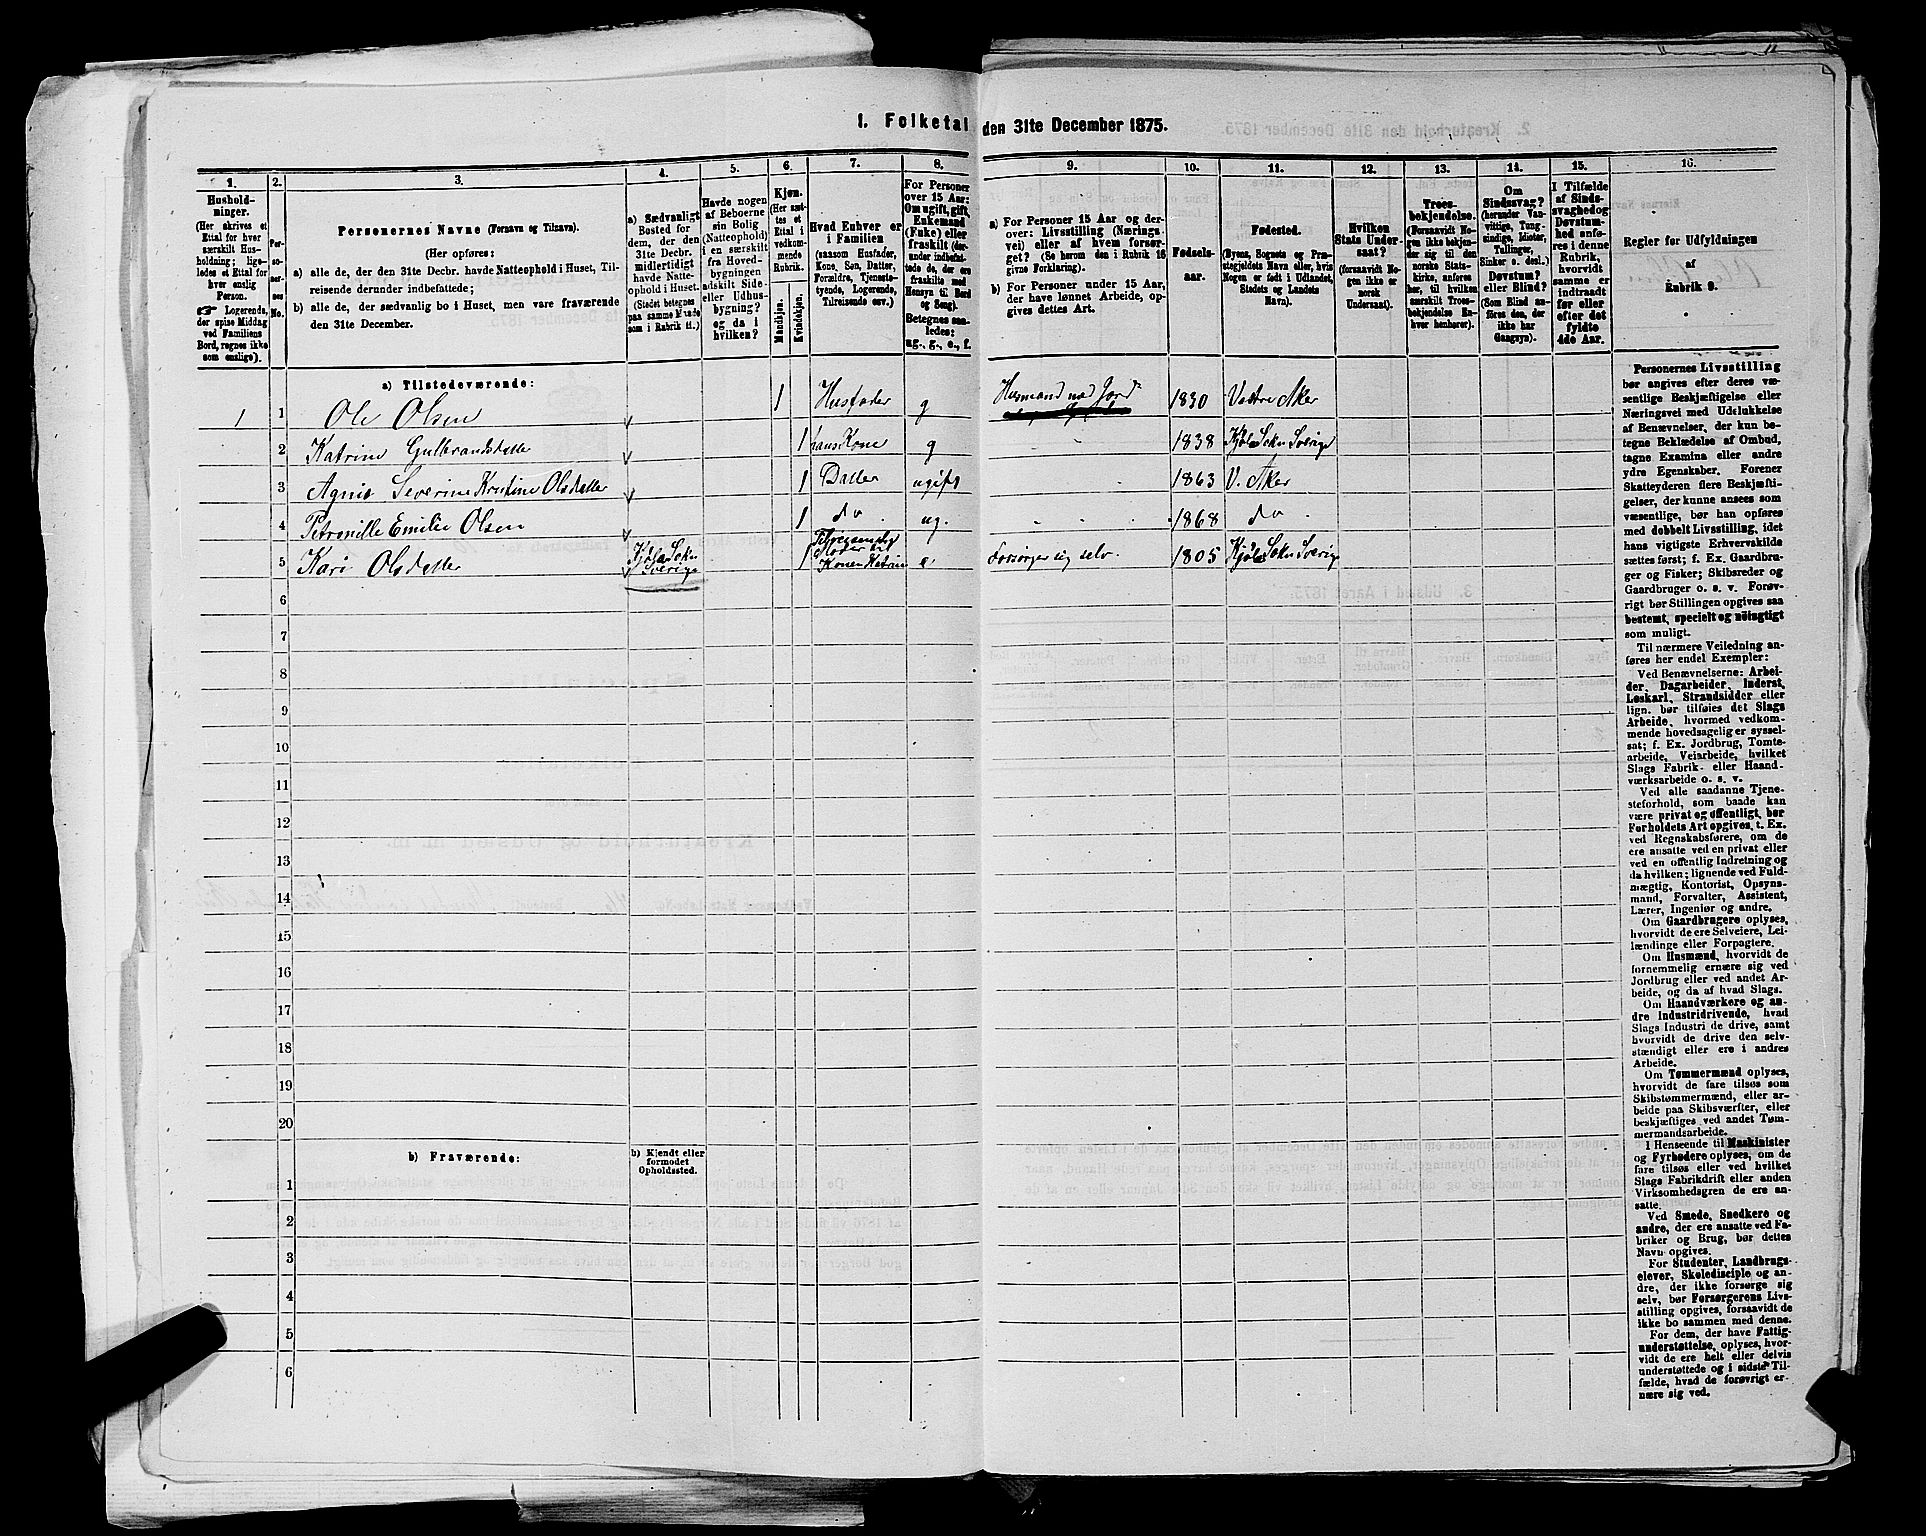 1. Folketal den 31te December 1875.
1.
2.
3.
4.
5.
6.
7.
8.
9.
10.
11.
12.
13.
14.
15.
16.
Hushold-
ninger.
(Her skrives et
Ettal for hver
særskilt Hus-
holdning; lige-
ledes et Ettal for
hver enslig
Person.
☞ Logerende,
der spise Middag
ved Familiens
Bord, regnes ikke
som enslige).
Per-
so-
ner-
nes
No.
Personernes Navne (Fornavn og Tilnavn).
(Her opføres:
a) alle de, der den 31te Decbr. havde Natteophold i Huset, Til-
reisende derunder indbefattede;
b) alle de, der sædvanlig bo i Huset, men vare fraværende
den 31te December.
a) Sædvanligt
Bosted for
dem, der den
31te Decbr.
midlertidigt
havde Natte-
ophold i Huset.
(Stedet betegnes
paa samme Maade
som i Rubrik 11.)
Havde nogen
af Beboerne
sin Bolig
(Natteophold)
i en særskilt
fra Hoved-
bygningen
adskilt Side-
eller Udhus-
bygning?
og da i
hvilken?
Kjøn.
(Her sæt-
tes et
Ettal i
vedkom-
mende
Rubrik.
Mandkjøn.
Kvindekjøn.
Hvad Enhver er
i Familien
(saasom Husfader,
Kone, Søn, Datter,
Forældre, Tjeneste-
tyende, Logerende,
Tilreisende osv.)
For Personer
over 15 Aar:
Om ugift, gift,
Enkemand
(Enke) eller
fraskilt (der-
under indbefat-
tede de, der ere
fraskilte med
Hensyn til Bord
og Seng).
Betegnes saa-
ledes:
ug., g., e., f.
a) For Personer 15 Aar og der-
over: Livsstilling (Nærings-
vei) eller af hvem forsør-
get? (Se herom den i Rubrik 16
givne Forklaring).
b) For Personer under 15 Aar,
der have lønnet Arbeide, op-
gives dettes Art.
Fødsels-
aar.
Fødested.
(Byens, Sognets eller Præ-
stegjeldets Navn eller, hvis
Nogen er født i Udlandet,
Stedets og Landets
Navn).
Hvilken
Stats Under-
saat?
(forsaavidt No-
gen ikke er
norsk
Undersaat).
Troes-
bekjendelse.
(Forsaavidt No-
gen ikke bekjen-
der sig til den
norske Stats-
kirke, anføres
her, til hvilken
særskilt Troes-
bekjendelse En-
hver henhører).
Om
Sindssvag?
(herunder Van-
vittige, Tung-
sindige, Idioter,
Tullinger,
Sinker o. desl.)
Døvstum?
eller Blind?
(Som Blind an-
føres den, der
ikke har
Gangsyn).
I Tilfælde
af Sinds-
svaghed og
Døvstum-
hed anfø-
res i denne
Rubrik,
hvorvidt
samme er
indtraadt
før eller
efter det
fyldte
4de Aar.
Regler for Udfyldningen
af
Rubrik 9.
a) Tilstedeværende:
1 1 Ole Olsen 1 Husfader g Husmand med Jord 1830 Vestre Aker
2 Katrine Gulbrandsdatter 1 hans Kone g 1838 Kjøla Sokn Sverige
3 Agnis Severine Kristine Olsdatter 1 Datter ugift 1863 V. Aker
4 Petronille Emilie Olsen 1 do ug. 1868 do
5 Kari Olsdatter Kjøla Sokn Sverige 1 Tilreisende Moder til Konen Katrine e Forsørger sig selv 1805 Kjøla Sokn Sverige
6
7
8
9
10
11
12
13
14
15
16
17
18
19
20
b) Fraværende:
b) Kjendt eller
formodet
Opholdssted.
1
2
3
4
5
6
Personernes Livsstilling
bør angives efter deres væ-
sentlige Beskjæftigelse eller
Næringsvei med Udelukkelse
af Benævnelser, der kun be-
tegne Beklædelse af Ombud,
tagne Examina eller andre
ydre Egenskaber. Forener
Skatteyderen flere Beskjæfti-
gelser, der kunne ansees som
væsentlige, bør han opføres
med dobbelt Livsstilling, idet
hans vigtigste Erhvervskilde
sættes først; f. Ex. Gaardbru-
ger og Fisker; Skibsreder og
Gaardbruger o. s. v. Forøv-
rigt bør Stillingen opgives saa
bestemt, specielt og nöiagtigt
som muligt.
Til nærmere Veiledning an-
føres her endel Exempler:
Ved Benævnelserne: Arbei-
der, Dagarbeider, Inderst,
Løskarl, Strandsidder eller
lign. bør tilføies det Slags
Arbeide, hvormed vedkom-
mende hovedsagelig er syssel-
sat; f. Ex. Jordbrug, Tomte-
arbeide, Veiarbeide, hvilket
Slags Fabrik- eller Haand-
værksarbeide o. s. v.
Ved alle saadanne Tjene-
steforhold, som baade kan
være privat og offentligt, bør
Forholdets Art opgives, t. Ex.
ved Regnskabsførere, om de
ere ansatte ved en privat eller
ved en offentlig Indretning og
da hvilken; lignende ved Fuld-
mægtig, Kontorist, Opsyns-
mand, Forvalter, Assistent,
Lærer, Ingeniør og andre.
Om Gaardbrugere oplyses,
hvorvidt de ere Selveiere, Lei-
lændinge eller Forpagtere.
Om Husmænd, hvorvidt de
fornemmelig ernære sig ved
Jordbrug eller ved andet Ar-
beide, og da af hvad Slags.
Om Haandværkere og an-
dre Industridrivende, hvad
Slags Industri de drive, samt
hvorvidt de drive den selv-
stændigt eller ere i andres
Arbeide.
Om Tømmermænd oplyses,
hvorvidt de fare tilsøs som
Skibstømmermænd, eller ar-
beide paa Skibsværfter, eller
beskjæftiges ved andet Tøm-
mermandsarbeide.
I Henseende til Maskinister
og Fyrbødere oplyses, om de
fare tilsøs eller ved hvilket
Slags Fabrikdrift eller anden
Virksomhedsgren de ere an-
satte.
Ved Smede, Snedkere og
andre, der ere ansatte ved Fa-
briker og Brug, bør dettes
Navn opgives.
For Studenter, Landbrugs-
elever, Skoledisciple og an-
dre, der ikke forsørge sig
selv, bør Forsørgerens Livs-
stilling opgives, forsaavidt de
ikke bo sammen med denne.
For dem, der have Fattig-
understøttelse, oplyses, hvor-
vidt de ere helt eller delvis
understøttede og i sidste Til-
fælde, hvad de forøvrigt er-
nære sig ved.